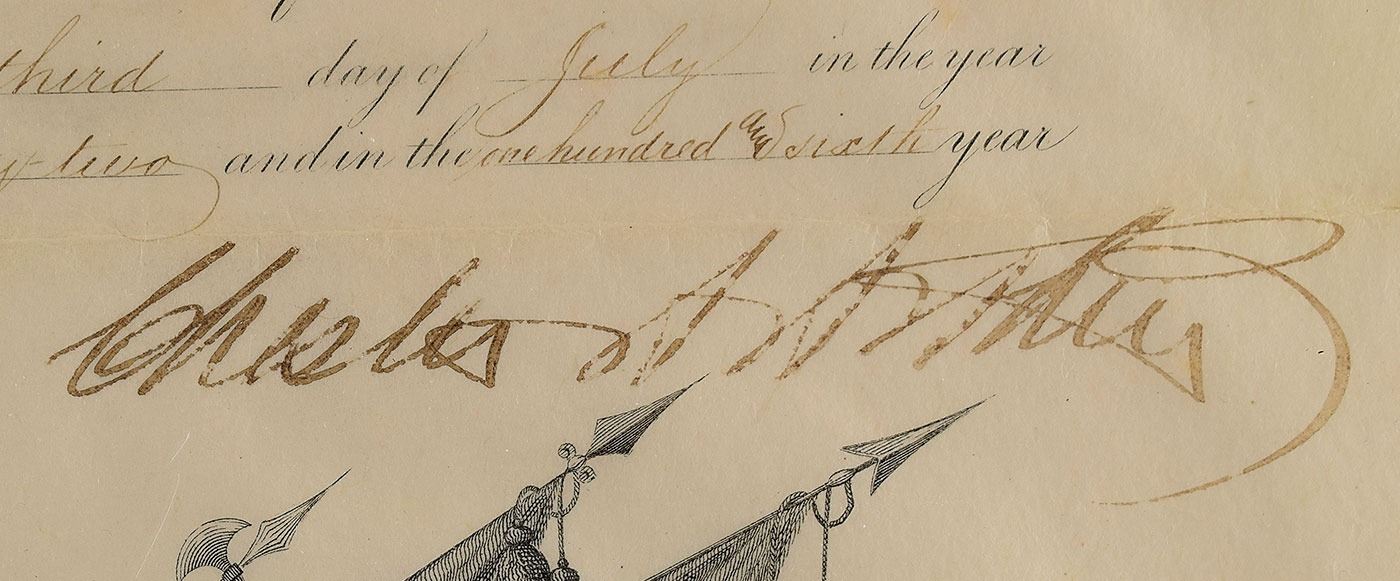 third day of July in the year
two and in the one hundred and sixth year
Chester A Arthur